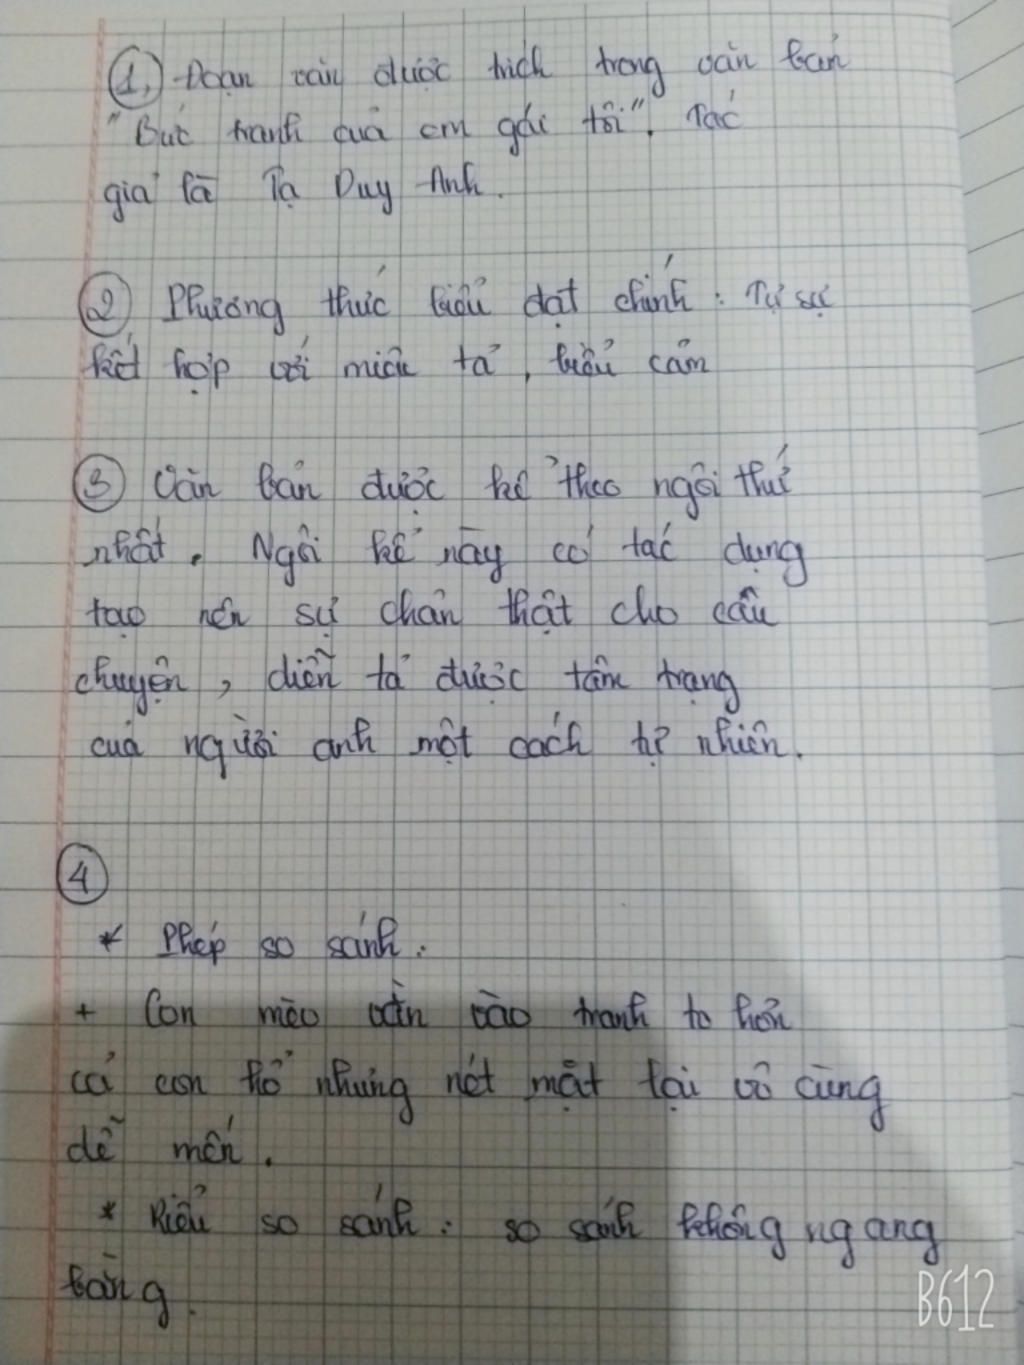 ① Đoạn văn được trích trong văn bản
"Bức tranh của em gái tôi". Tác
giả là Tạ Duy Anh.
② Phương thức biểu đạt chính : Tự sự
kết hợp với miêu tả , biểu cảm
③ Văn bản được kể theo ngôi thứ
nhất . Ngôi kể này có tác dụng
tạo nên sự chân thật cho câu
chuyện , diễn tả được tâm trạng
của người anh một cách tự nhiên .
④
* Phép so sánh :
+ Con mèo vằn vào tranh to hơn
cả con hổ nhưng nét mặt lại vô cùng
dễ mến .
* Kiểu so sánh : so sánh không ngang
bằng .
B612